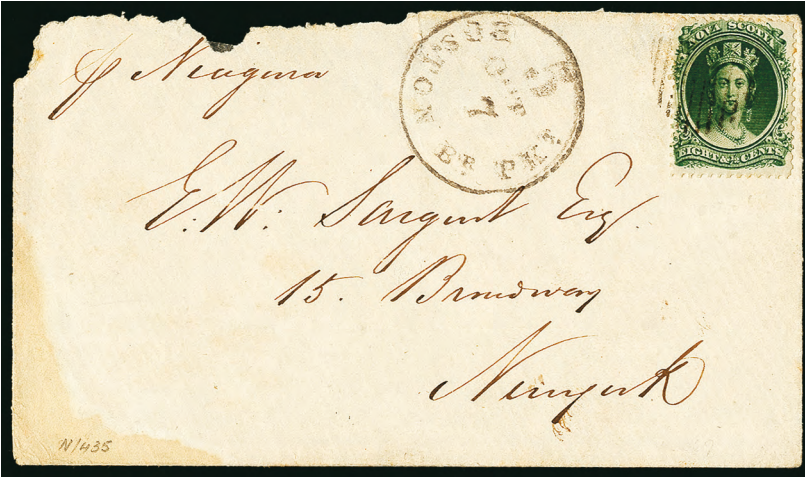 p Niagara
BOSTON
OCT
7
BR. PKT.
5
NOVA SCOTIA
EIGHT & ½ CENTS
E. W. Sargent Esq.
15. Broadway
Newyork
N/435